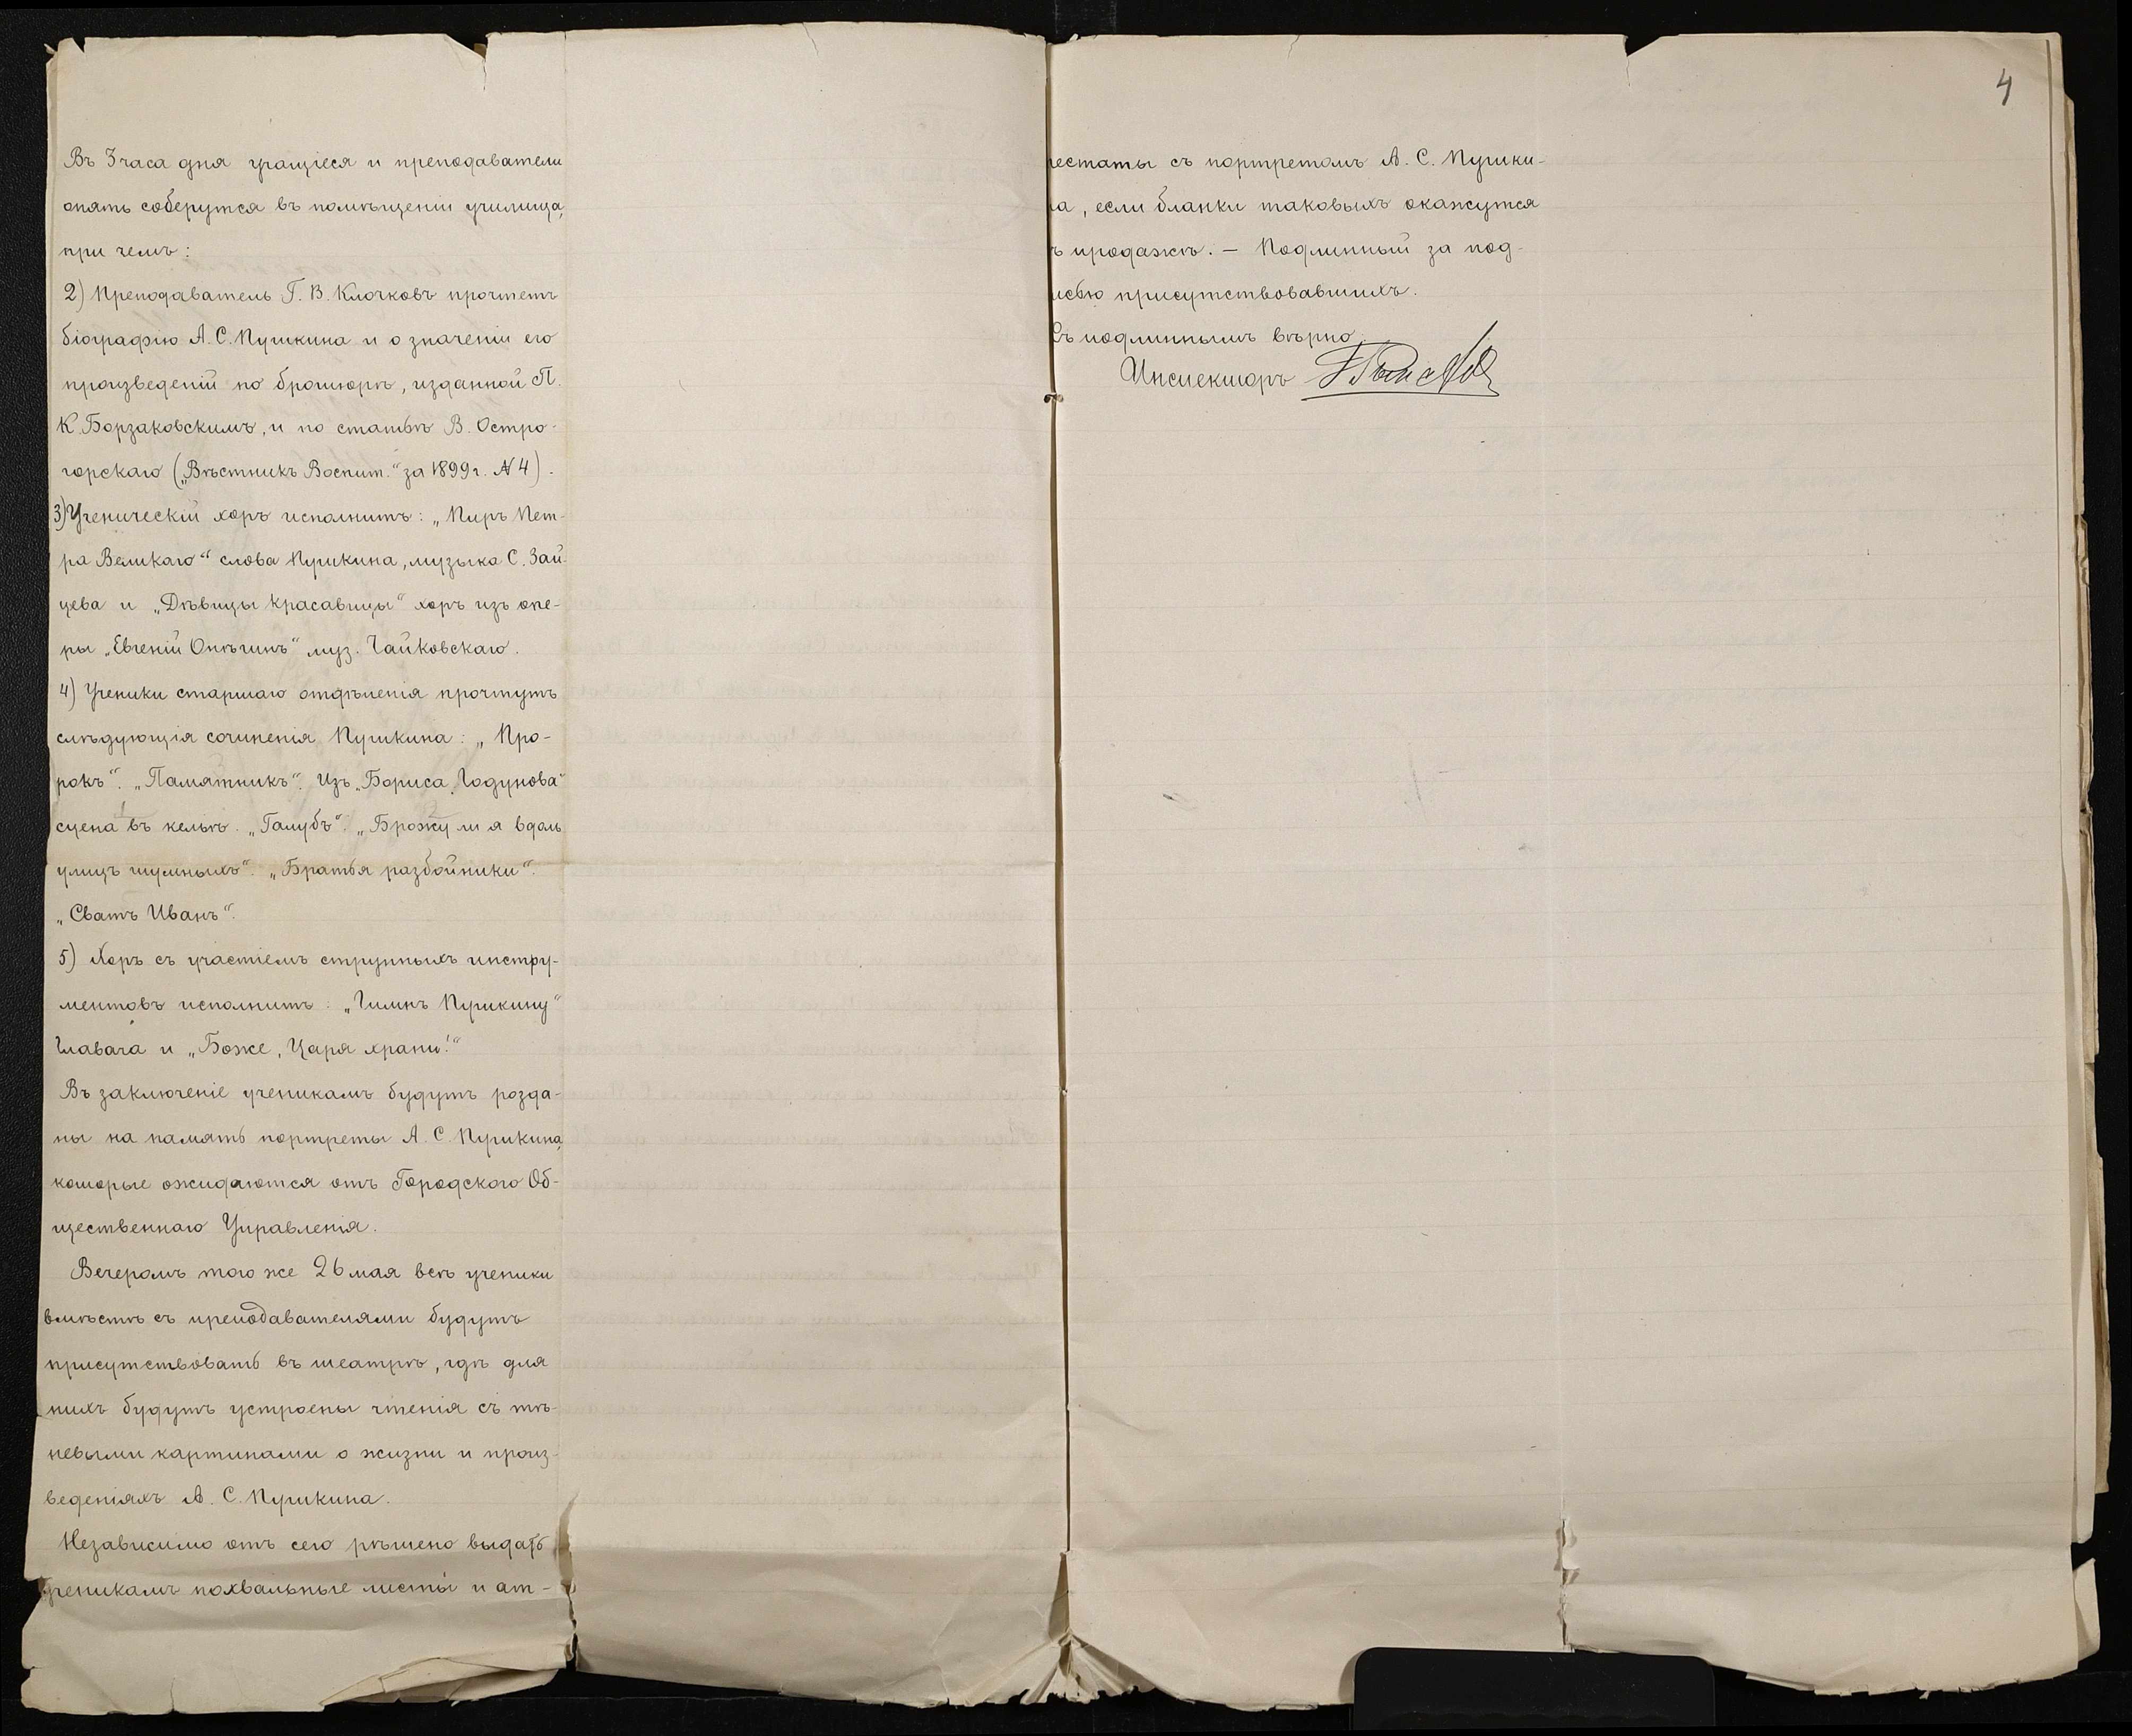 Въ 3 часа дня учащіеся и преподаватели
опять соберутся въ помѣщеніи училища,
при чемъ:
2) Преподаватель Г. В. Клочковъ прочтетъ
біографію А. С. Пушкина и о значеніи его
произведеній по брошюрѣ, изданной П.
К. Борзаковскимъ, и по статьѣ В. Остро-
горскаго („Вѣстникъ Воспит.“ за 1899 г. № 4).
3) Ученическій хоръ исполнитъ: „Пиръ Пет-
ра Великаго“ слова Пушкина, музыка С. Зай-
цева и „Дѣвицы красавицы“ хоръ изъ опе-
ры „Евгеній Онѣгинъ“ муз. Чайковскаго.
4) Ученики старшаго отдѣленія прочтутъ
слѣдующія сочиненія Пушкина: „Про-
рокъ“. „Памятникъ“. Изъ „Бориса Годунова“
сцена въ кельѣ. „Галубъ“. „Брожу ли я вдоль
улицъ шумныхъ“. „Братья разбойники“.
„Сватъ Иванъ“.
5) Хоръ съ участіемъ струнныхъ инстру-
ментовъ исполнитъ: „Гимнъ Пушкину“
Главача и „Боже, Царя храни!“
Въ заключеніе ученикамъ будутъ розда-
ны на память портреты А. С. Пушкина,
которые ожидаются отъ Городского Об-
щественнаго Управленія.
Вечеромъ того же 26 мая всѣ ученики
вмѣстѣ съ преподавателями будутъ
присутствовать въ театрѣ, гдѣ для
нихъ будутъ устроены чтенія съ тѣ-
невыми картинами о жизни и произ-
веденіяхъ А. С. Пушкина.
Независимо отъ сего рѣшено выдать
ученикамъ похвальные листы и ат-
4
тестаты съ портретомъ А. С. Пушки-
на, если бланки таковыхъ окажутся
въ продажѣ. — Подлинный за под-
писью присутствовавшихъ.
Съ подлиннымъ вѣрно
Инспекторъ